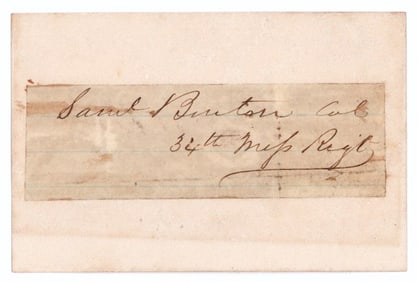 Saml Benton Col
34th Miss Regt